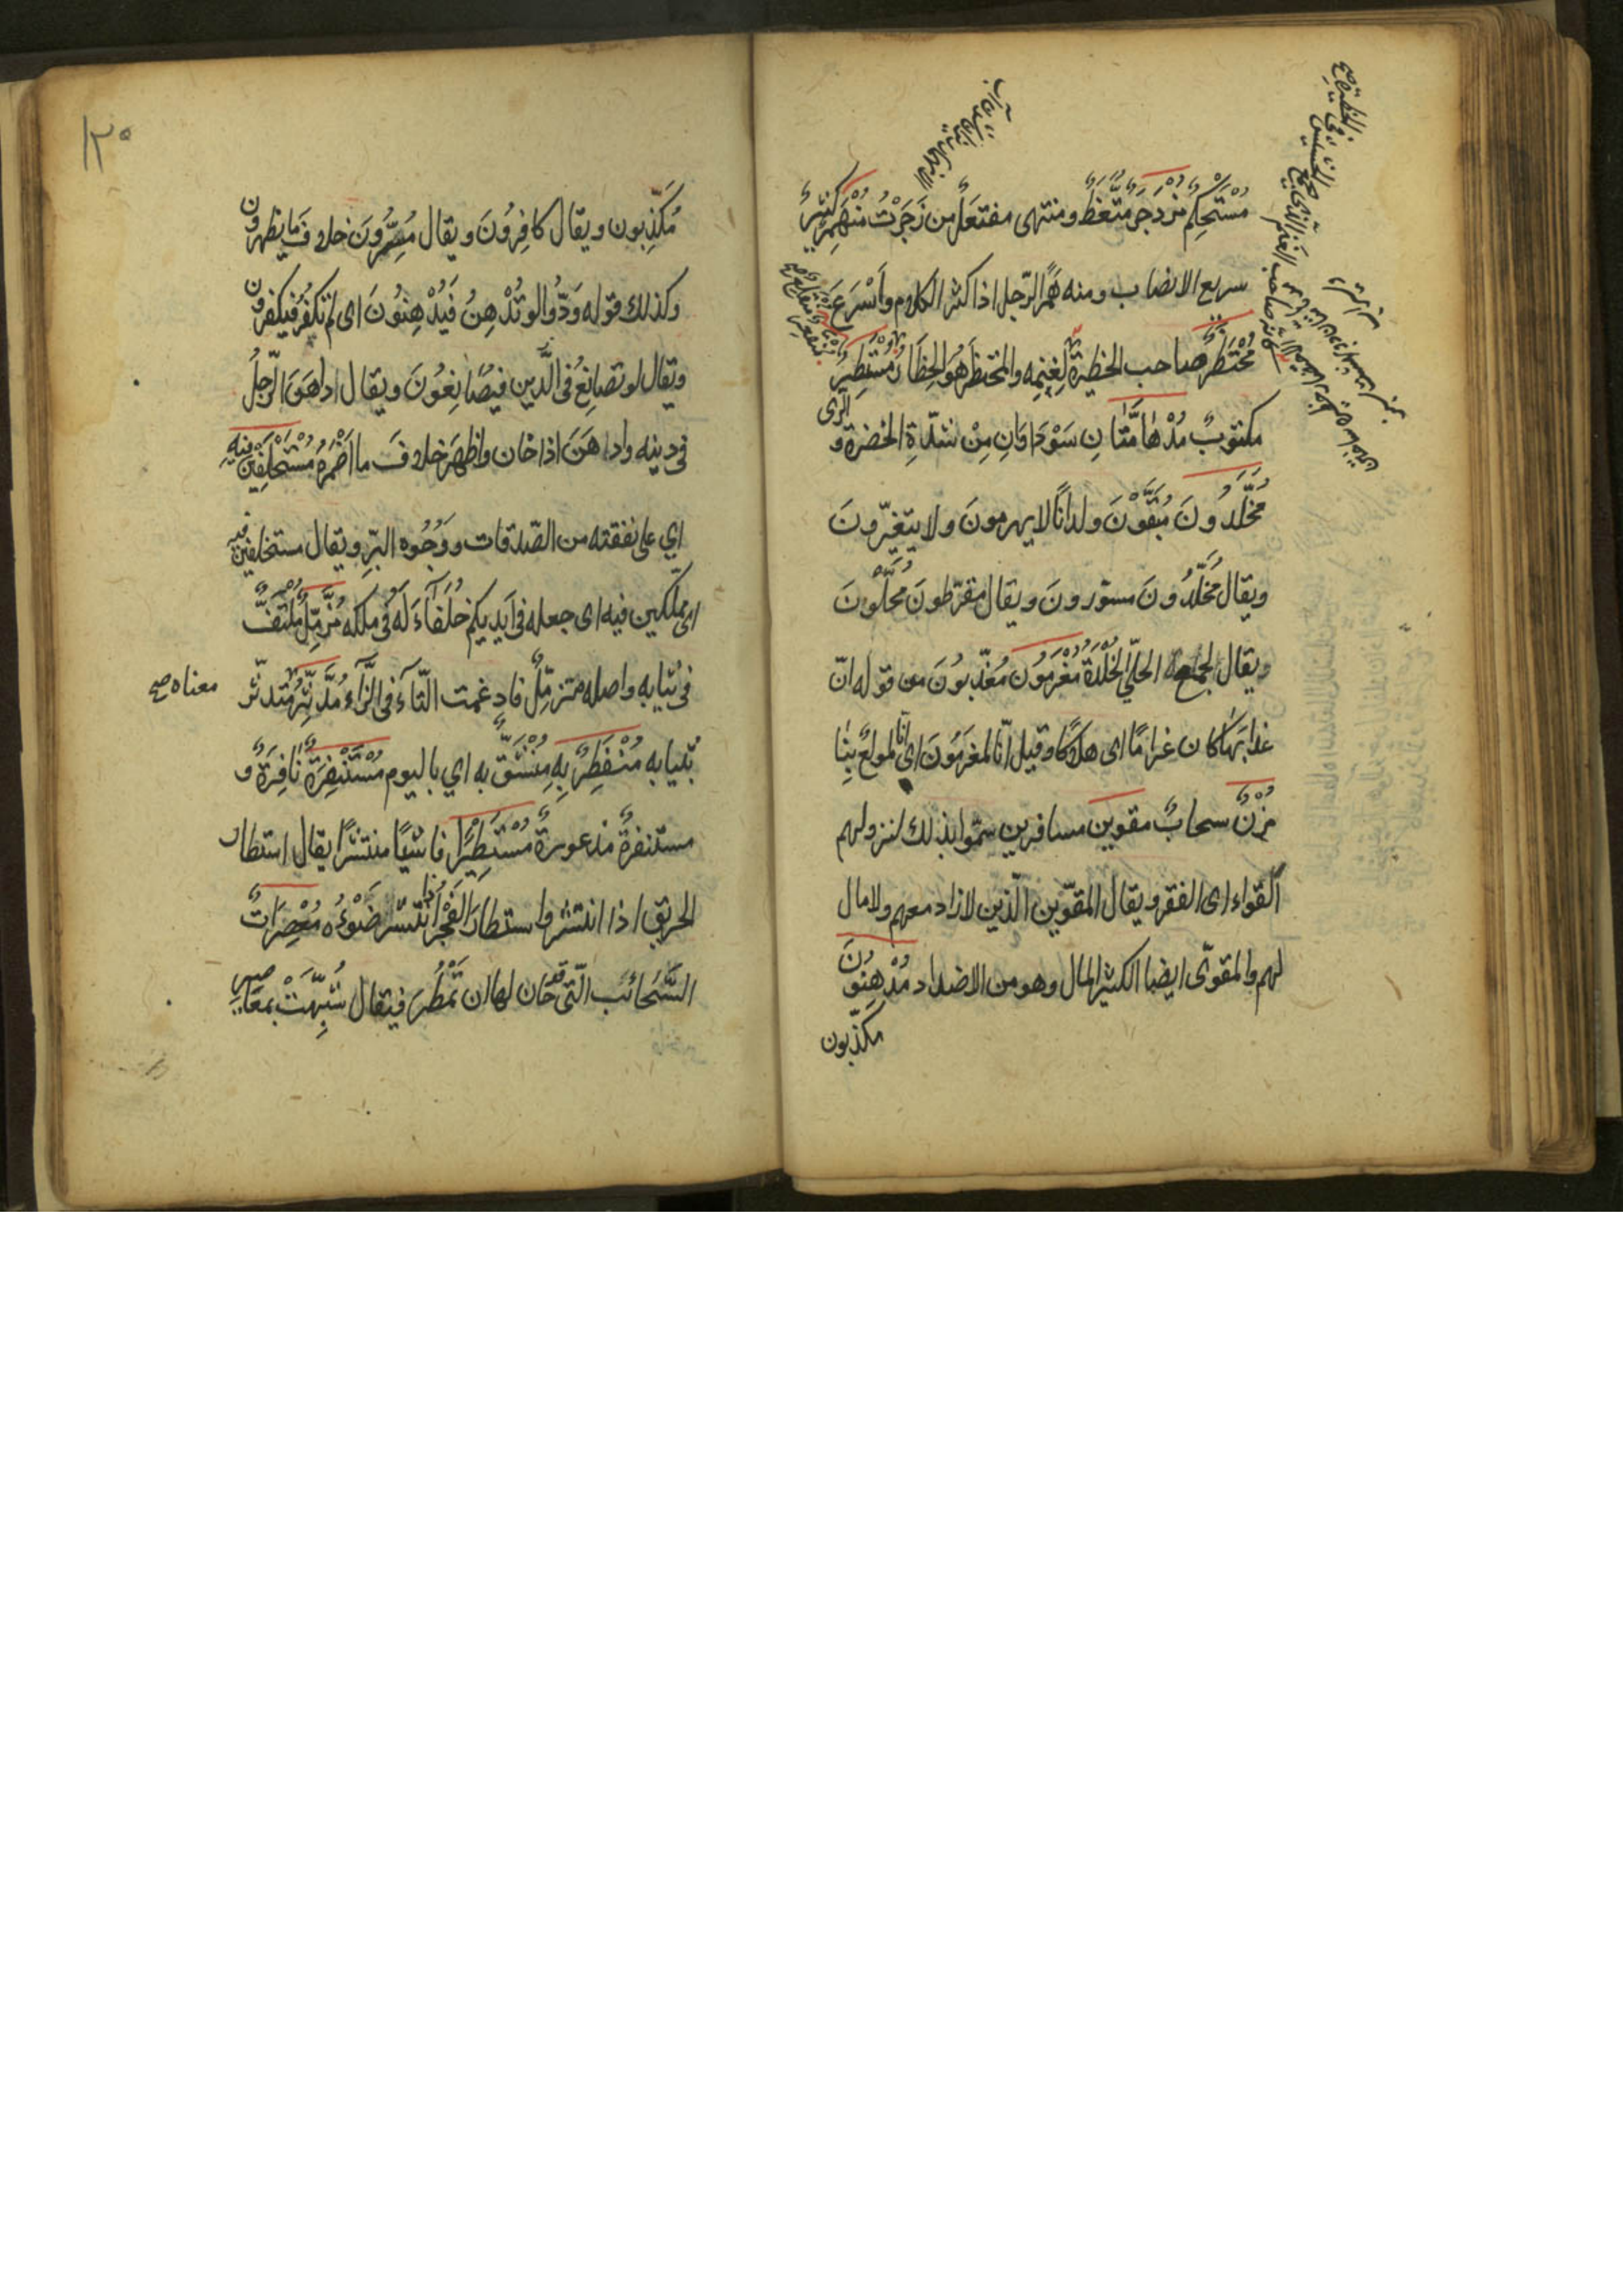 مُسْتَحْكِمٌ مُزْدَجَرٌ مُتَّعَظٌ ومنتهى مفتعَلٌ من زَجَرْتُ مُنْهَمِرٌ كَثِيرٌ
سريع الانصاب ومنه هَمَرَ الرّجل اذا كثر الكلام واَسْرَعَ
مُحْتَظِرٌ صاحب الحظيرة لِغَنَمِه والمحتظَر هُوَ الحِظَار مُسْتَطَرٌ
مكتوبٌ مُدْهَامَّتَانِ سَوْدَاوَانِ مِنْ شدّةِ الخضرة و الرّىّ
مُخَلَّدُونَ مُبَقَّوْنَ ولدانًا لا يهرمونَ ولا يتغيّرونَ
ويقال مُخَلَّدُونَ مسوّرونَ ويقال مقرّطونَ مُحَلَّوْنَ
ويقال لجماعة الحلىّ الخُلْدَةُ مُغْرَمُونَ مُعَذّبُونَ من قوله انّ
عذابَها كان غرامًا اى هلاكًا وقيل انّا لمغرَمُونَ اى انّا لمولعٌ بِنَا
مُزْنٌ سحابٌ مقوين مسافرين سمّوا بذلك لنزولهم
القواء اى الفقر ويقال المقوّين الّذين لا زاد معهم ولا مال
لهم والمقوّى ايضا الكثير المال وهو من الاضداد مُدْهِنُونَ
مكذّبون
١٣٠
مُكَذِّبون ويقال كافِرُونَ ويقال مُسِرُّونَ خلافَ ما يظهرون
وكذلك قوله وَدُّوا لو تُدْهِنُ فَيُدْهِنُونَ اى لم تكفُر فيكفرون
ويقال لو تصانِعُ فى الدّين فيُصَانِعُونَ ويقال ادهَنَ الرّجلُ
فى دينه وداهَنَ اذا خان واظهَرَ خلافَ ما اَضْمَرَ مُسْتَخْلَفِينَ فِيهِ
اي على نفقته من الصّدقات ووُجُوه البِرّ ويقال مستخلفين فيه
اى مملّكين فيه اى جعله فى اَيديكم خُلَفَاءَ لَهُ فى ملكه مُزَّمِّلٌ مُلْتَفٌّ
فى ثيابه واصله متزمِّلٌ فادغمت التّاءُ فى الزّاء مُدَّثِّرٌ متدثّر
معناه صح
بثيابه مُنْفَطِرٌ بِهِ مُنْشَقٌّ به اي باليوم مُسْتَنْفِرَةٌ نَافِرَةٌ و
مستنفَرةٌ مذعورةٌ مُسْتَطِيرًا فاشيًا منتشرًا يقال استطار
الحريق اذا انتشر واستطارَ الفَجْرُ اذا انتشر ضَوْءُه مُعْصِرَاتٌ
السَّحَائبُ الّتى قد حَان لها ان تمْطُرَ فيقال شُبِّهَتْ بمعاصير